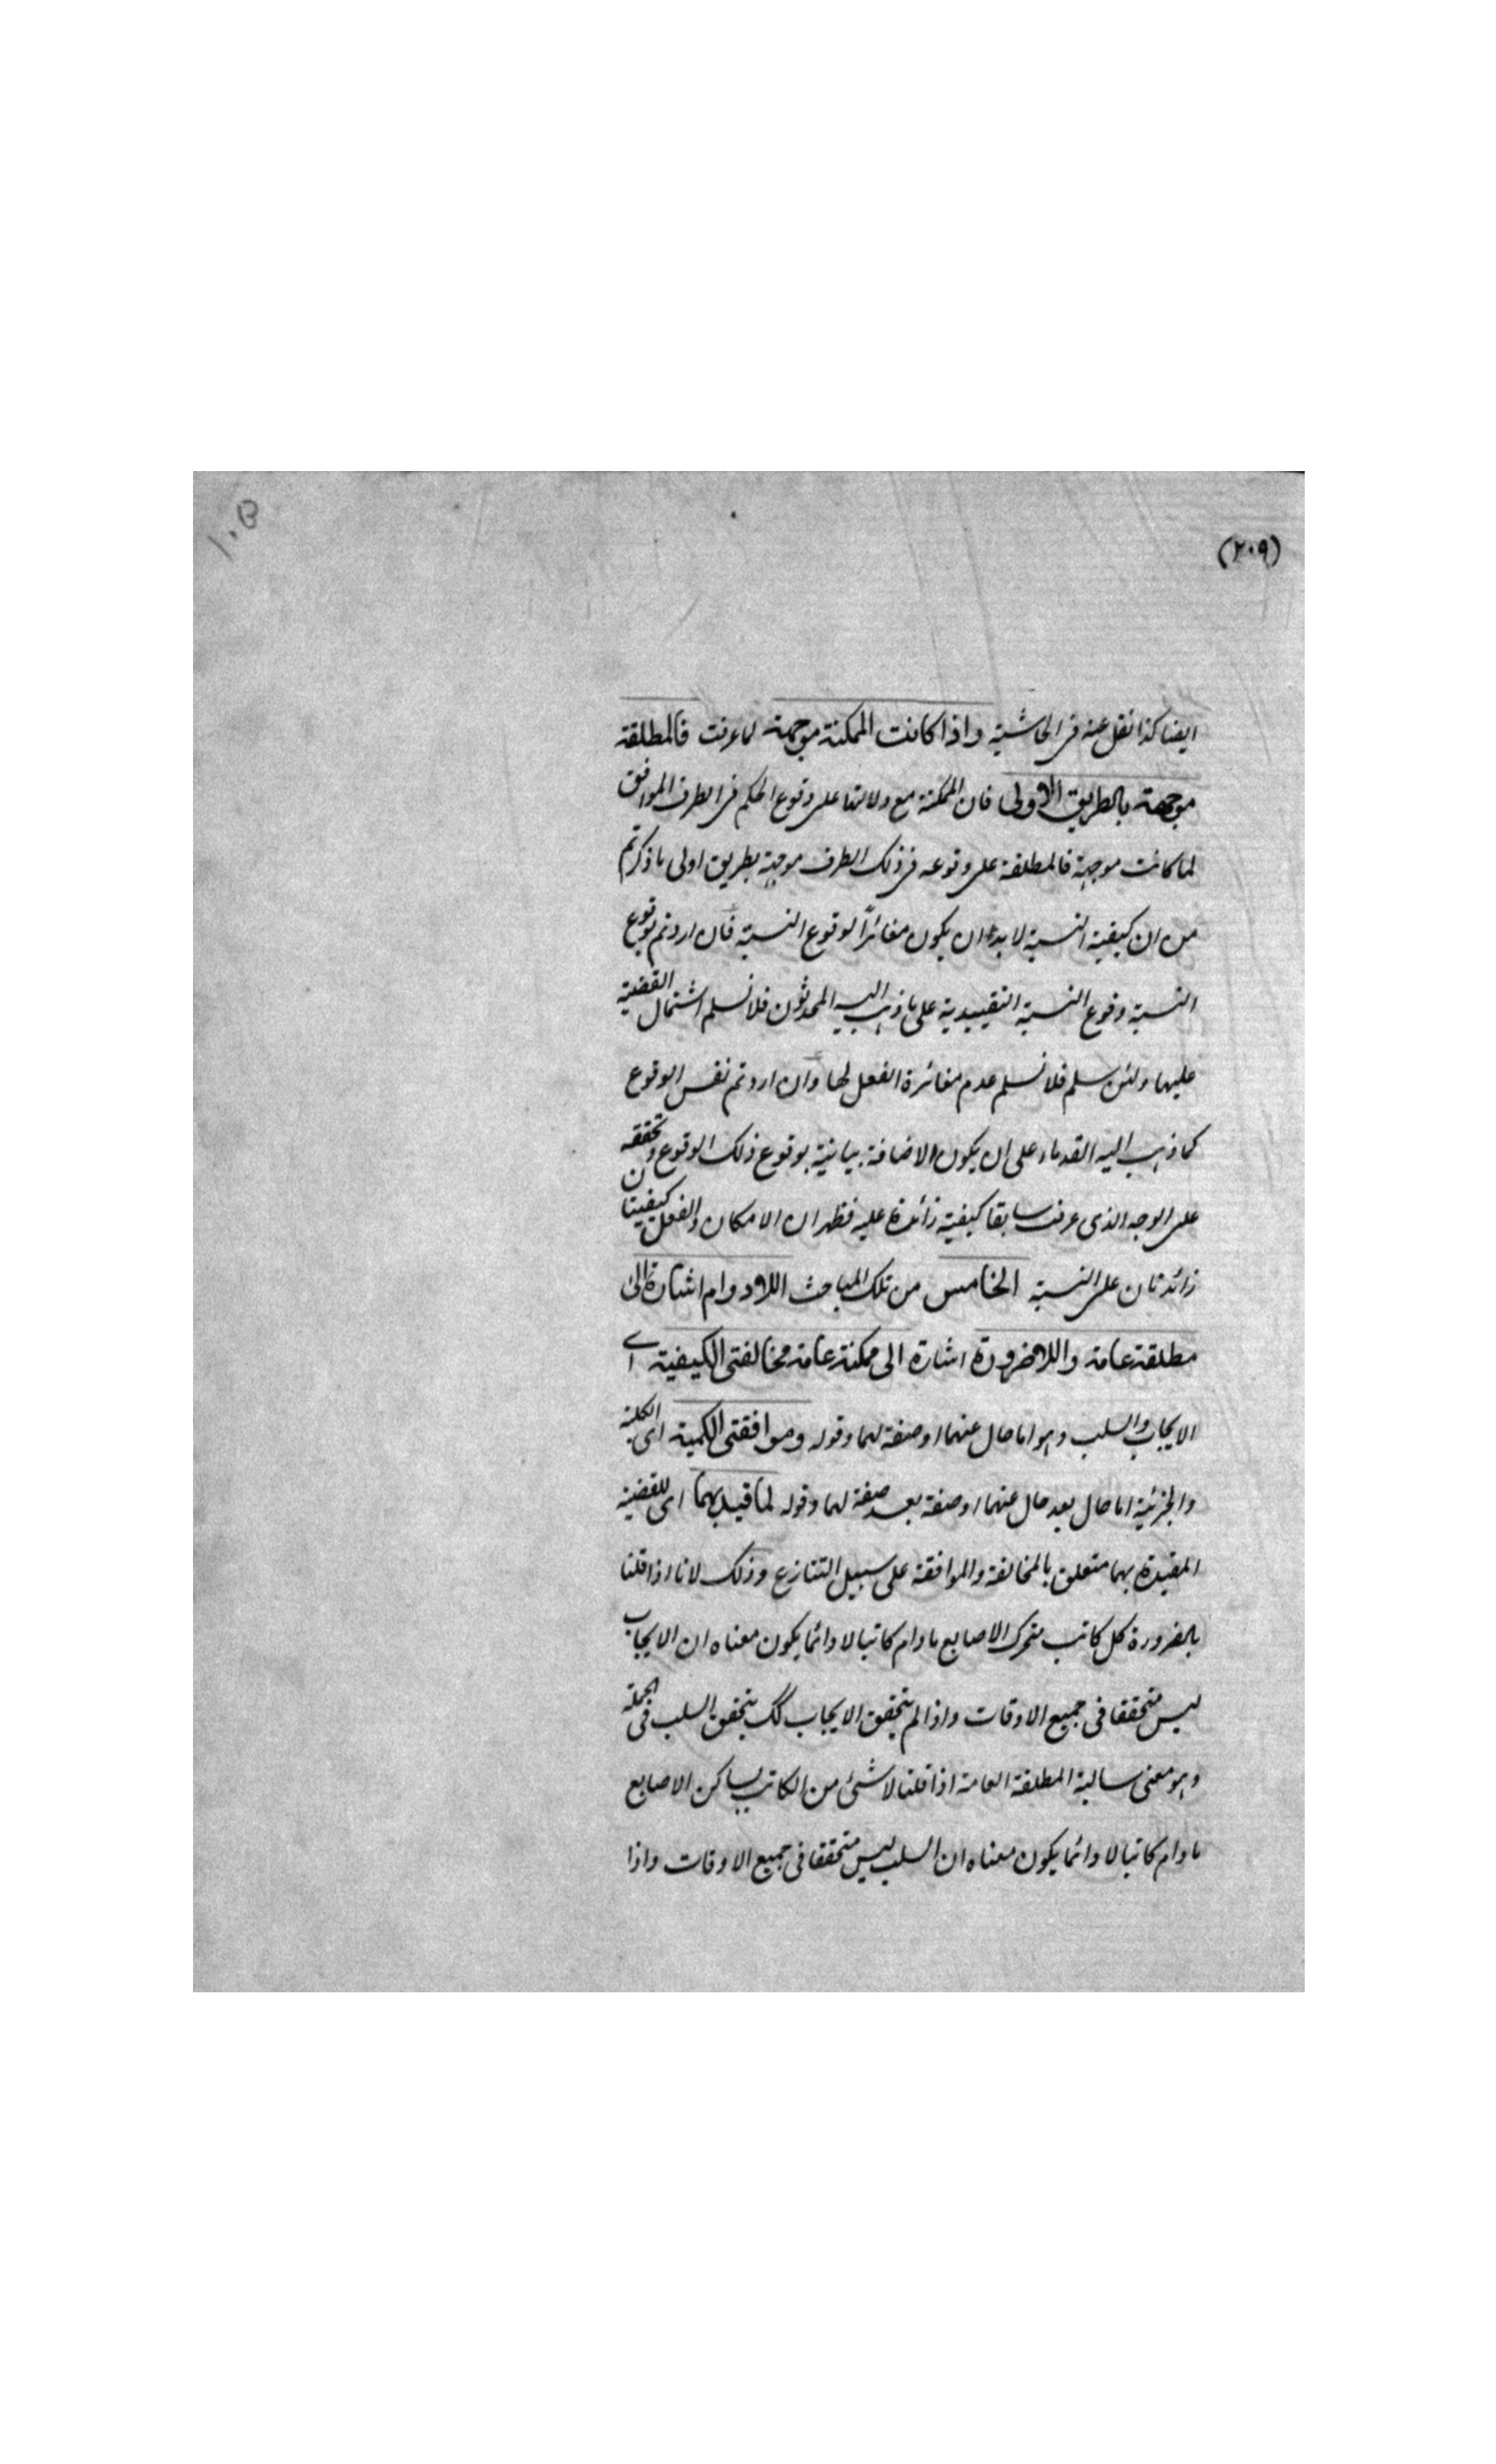 (٢٠٩)
١٠٥
ايضا كذا نقل عنه فى الحاشية واذا كانت الممكنة موجهة لما عرفت فالمطلقة
موجهة بالطريق الاولى فان الممكنة مع دلالتها على وقوع الحكم فى الطرف الموافق
لما كانت موجهة فالمطلقة على وقوعه فى ذلك الطرف موجهة بطريق اولى ما ذكرتم
من ان كيفية النسبة لا بد ان يكون مغائرا لوقوع النسبة فان اردتم بوقوع
النسبة وقوع النسبة التقييدية على ما ذهب اليه المحدثون فلا نسلم اشتمال القضية
عليها ولئن سلم فلا نسلم عدم مغائرة الفعل لها وان اردتم نفس الوقوع
كما ذهب اليه القدماء على ان يكون الاضافة بيانية بوقوع ذلك الوقوع وتحققه
على الوجه الذى عرفت سابقا كيفية زائدة عليه فظهر ان الامكان والفعل كيفيتان
زائدتان على النسبة الخامس من تلك المباحث اللادوام اشارة الى
مطلقة عامة واللاضرورة اشارة الى ممكنة عامة مخالفتى الكيفية اے
الايجاب والسلب وهو اما حال عنهما او صفة لهما وقوله وموافقتى الكمية اى الكلية
والجزئية اما حال بعد حال عنهما او صفة بعد صفة لهما وقوله لما قيد بهما اى للقضية
المقيدة بهما متعلق بالمخالفة والموافقة على سبيل التنازع وذلك لانا اذا قلنا
بالضرورة كل كاتب متحرك الاصابع ما دام كاتبا لا دائما يكون معناه ان الايجاب
ليس متحققا فى جميع الاوقات واذا لم يتحقق الايجاب كك يتحقق السلب فى الجملة
وهو معنى سالبة المطلقة العامة اذا قلنا لا شئ من الكاتب بساكن الاصابع
ما دام كاتبا لا دائما يكون معناه ان السلب ليس متحققا فى جميع الاوقات واذا